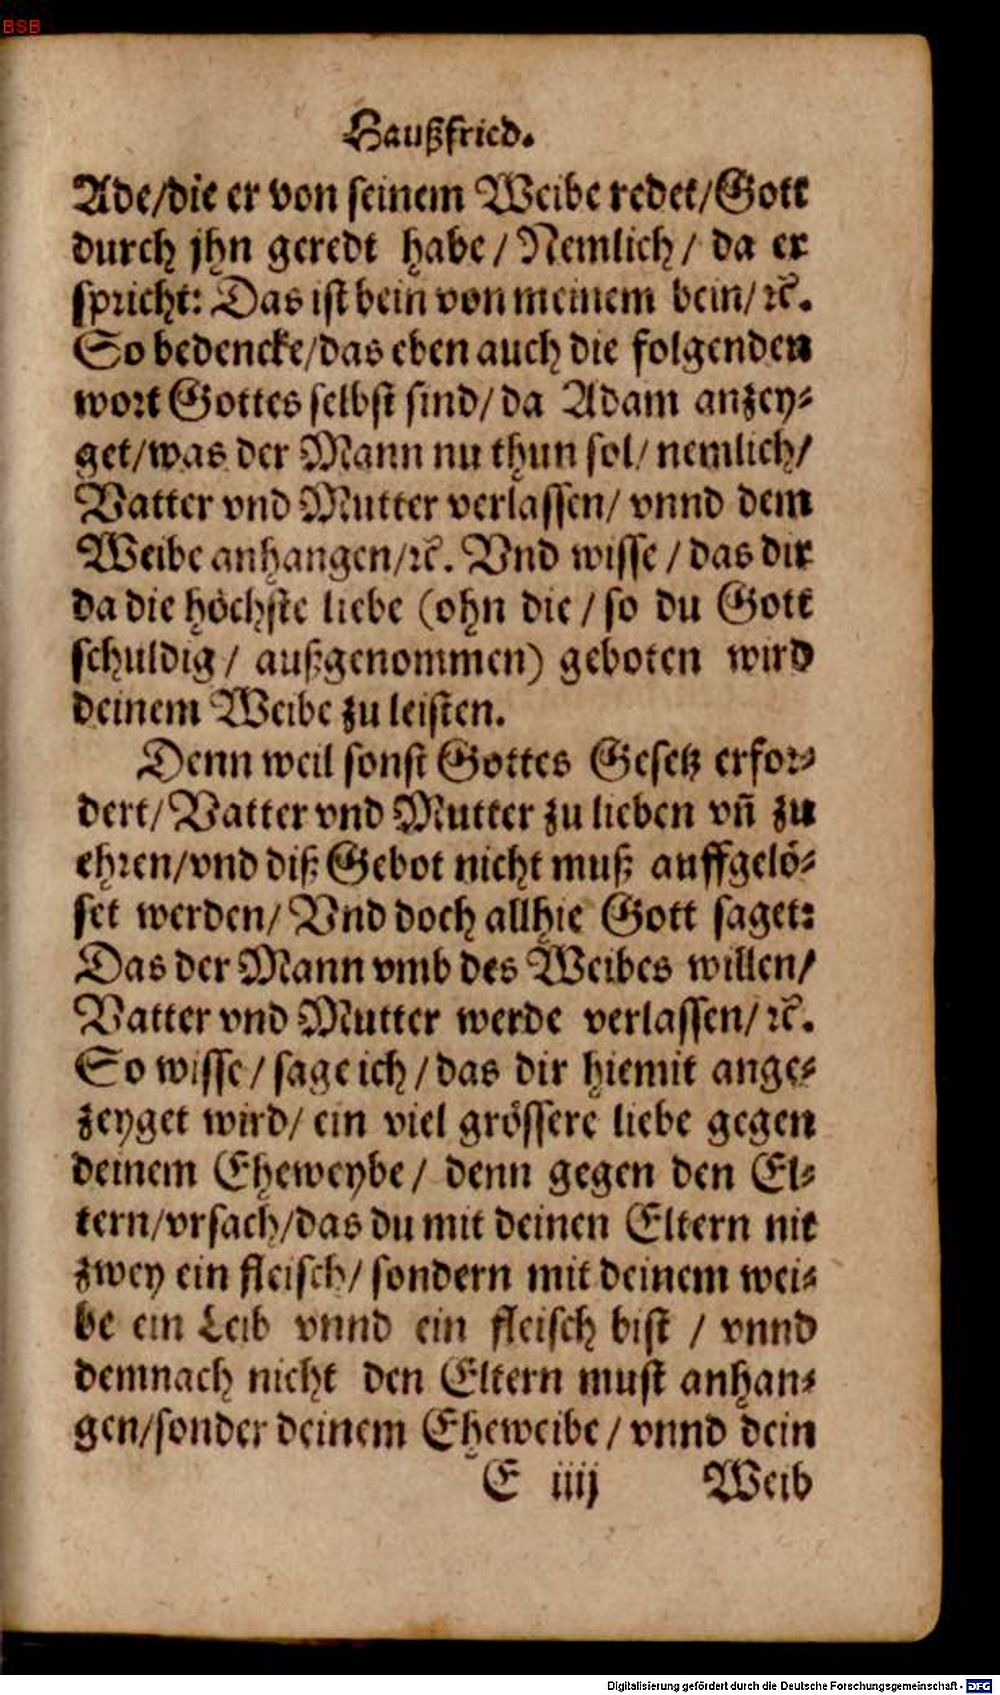 BSB
Haußfried.
Ade/die er von seinem Weibe redet/Gott
durch jhn geredt habe / Nemlich / da er
spricht: Das ist bein von meinem bein/ ꝛc̃.
So bedencke/das eben auch die folgenden
wort Gottes selbst sind/ da Adam anzey⸗
get/was der Mann nu thun sol/ nemlich/
Vatter vnd Mutter verlassen/ vnnd dem
Weibe anhangen/ꝛc̃. Vnd wisse / das dir
da die höchste liebe (ohn die / so du Gott
schuldig / außgenommen) geboten wird
deinem Weibe zu leisten.
Denn weil sonst Gottes Gesetz erfor⸗
dert/ Vatter vnd Mutter zu lieben vñ zu
ehren/vnd diß Gebot nicht muß auffgelö⸗
set werden/ Vnd doch allhie Gott saget:
Das der Mann vmb des Weibes willen/
Vatter vnd Mutter werde verlassen/ ꝛc̃.
So wisse / sage ich / das dir hiemit ange⸗
zeyget wird/ ein viel grössere liebe gegen
deinem Eheweybe / denn gegen den El⸗
tern/vrsach/das du mit deinen Eltern nit
zwey ein fleisch/ sondern mit deinem wei⸗
be ein Leib vnnd ein fleisch bist / vnnd
demnach nicht den Eltern must anhan⸗
gen/sonder deinem Eheweibe / vnnd dein
E iiij Weib
Digitalisierung gefördert durch die Deutsche Forschungsgemeinschaft - DFG